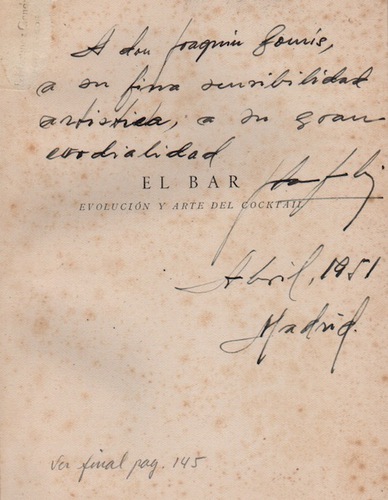 A don Joaquín Gomis,
a su fina sensibilidad
artística, a su gran
cordialidad
EL BAR
EVOLUCIÓN Y ARTE DEL COCKTAIL
Abril, 1951
Madrid.
Ver final pag. 145